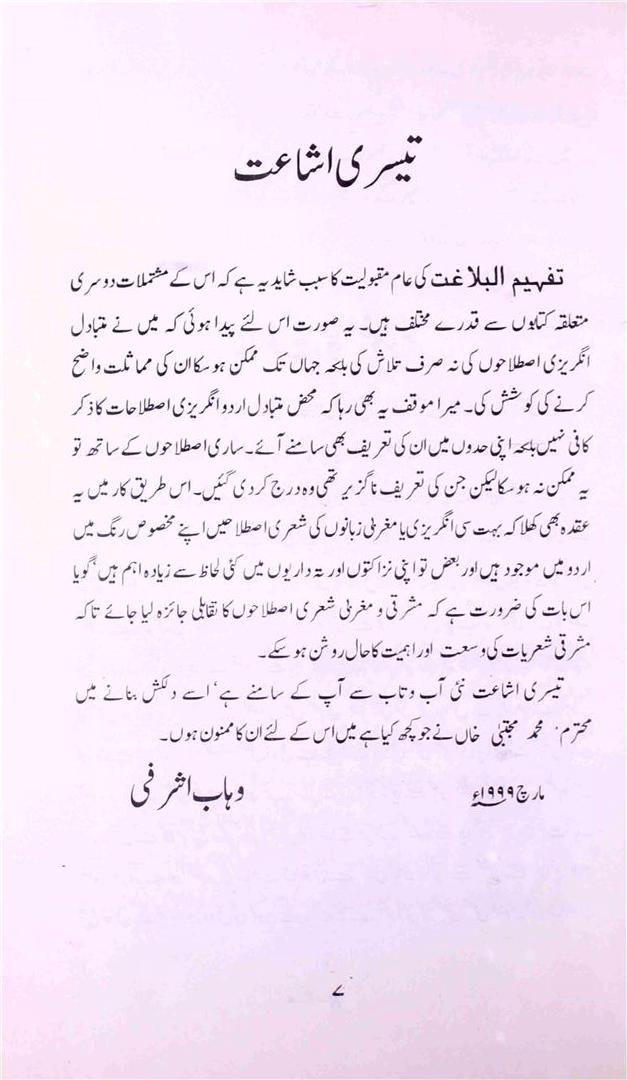 تیسری اشاعت
تفہیم البلاغت کی عام مقبولیت کا سبب شاید یہ ہے کہ اس کے مشتملات دوسری
متعلقہ کتابوں سے قدرے مختلف ہیں۔ یہ صورت اس لئے پیدا ہوئی کہ میں نے متبادل
انگریزی اصطلاحوں کی نہ صرف تلاش کی بلکہ جہاں تک ممکن ہو سکا ان کی مماثلت واضح
کرنے کی کوشش کی۔ میرا موقف یہ بھی رہا کہ محض متبادل اردو انگریزی اصطلاحات کا ذکر
کافی نہیں بلکہ اپنی حدوں میں ان کی تعریف بھی سامنے آئے۔ ساری اصطلاحوں کے ساتھ تو
یہ ممکن نہ ہو سکا لیکن جن کی تعریف ناگزیر تھی وہ درج کر دی گئیں۔ اس طریق کار میں یہ
عقدہ بھی کھلا کہ بہت سی انگریزی یا مغربی زبانوں کی شعری اصطلاحیں اپنے مخصوص رنگ میں
اردو میں موجود ہیں اور بعض تو اپنی نزاکتوں اور تہ داریوں میں کئی لحاظ سے زیادہ اہم ہیں‘ گویا
اس بات کی ضرورت ہے کہ مشرقی و مغربی شعری اصطلاحوں کا تقابلی جائزہ لیا جائے تاکہ
مشرقی شعریات کی وسعت اور اہمیت کا حال روشن ہو سکے۔
تیسری اشاعت نئی آب و تاب سے آپ کے سامنے ہے‘ اسے دلکش بنانے میں
محترم محمد مجتبیٰ خاں نے جو کچھ کیا ہے میں اس کے لئے ان کا ممنون ہوں۔
مارچ ۱۹۹۹ء وہاب اشرفی
۷